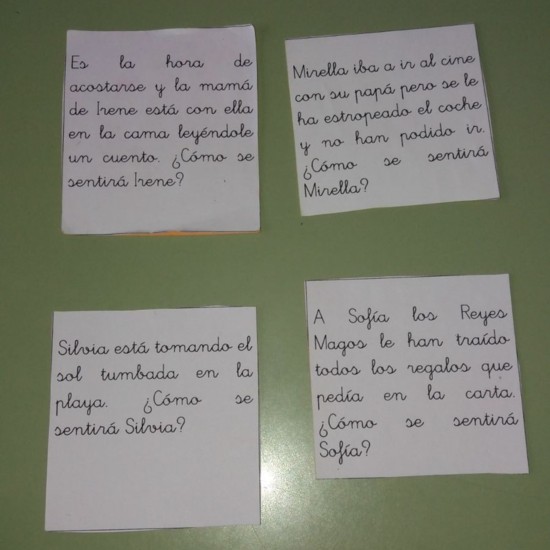 Es la hora de
acostarse y la mamá
de Irene está con ella
en la cama leyéndole
un cuento. ¿Cómo se
sentirá Irene?
Mirella iba a ir al cine
con su papá pero se le
ha estropeado el coche
y no han podido ir.
¿Cómo se sentirá
Mirella?
Silvia está tomando el
sol tumbada en la
playa. ¿Cómo se
sentirá Silvia?
A Sofía los Reyes
Magos le han traído
todos los regalos que
pedía en la carta.
¿Cómo se sentirá
Sofía?